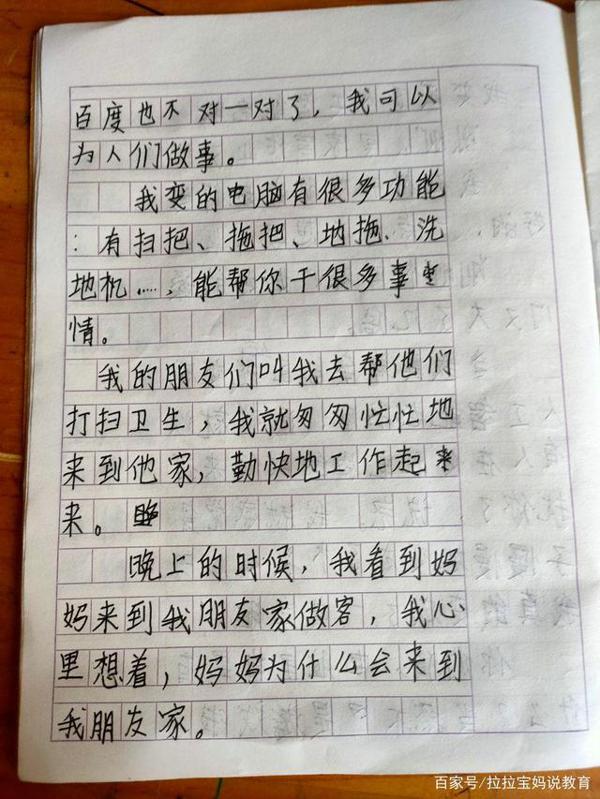 百度也不对一对了，我可以
为人们做事。
我变的电脑有很多功能
：有扫把、拖把、地拖、洗
地机……，能帮你干很多事
情。
我的朋友们叫我去帮他们
打扫卫生，我就匆匆忙忙地
来到他家，勤快地工作起来
来。晚
晚上的时候，我看到妈
妈来到我朋友家做客，我心
里想着，妈妈为什么会来到
我朋友家。
百家号/拉拉宝妈说教育